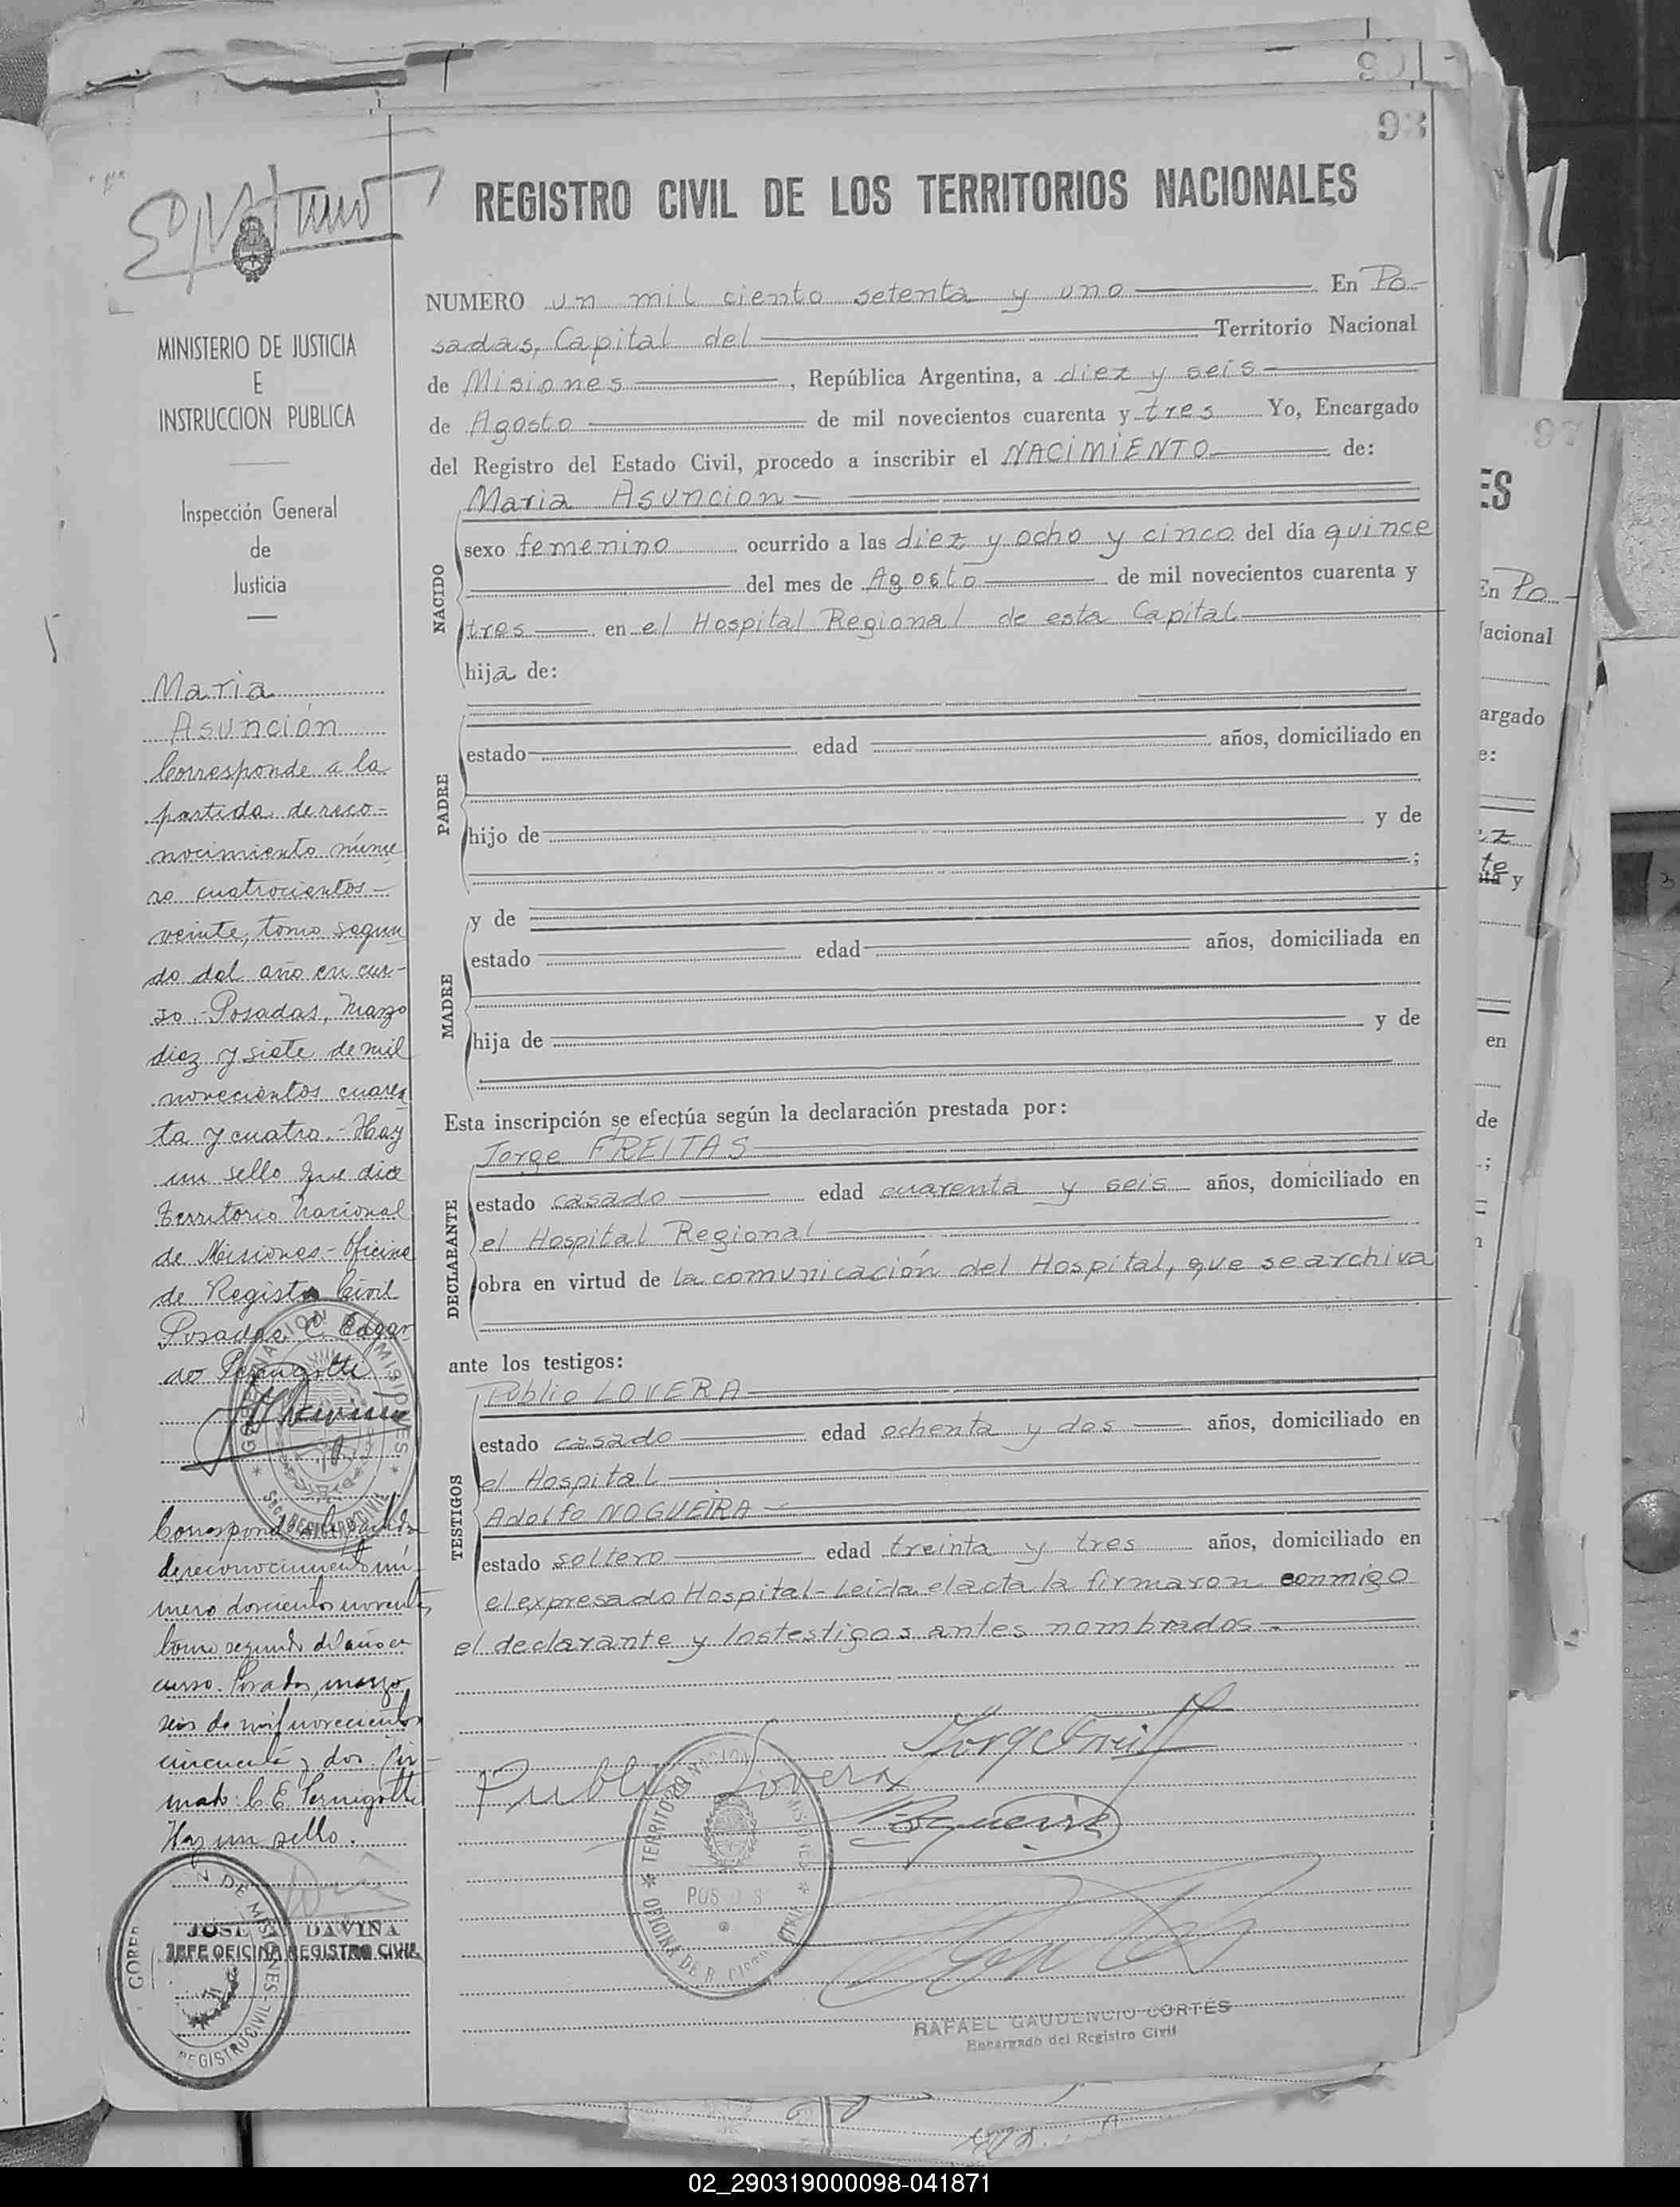 93
REGISTRO CIVIL DE LOS TERRITORIOS NACIONALES
MINISTERIO DE JUSTICIA
E
INSTRUCCION PUBLICA
Inspección General
de
Justicia
Maria
Asunción
Corresponde a la
partida de reco-
nocimiento núme
ro cuatrocientos
veinte, tomo segun
do del año en cur-
so.- Posadas, Marzo
diez y siete de mil
novecientos cuaren
ta y cuatro.- Hay
un sello que dice
Territorio Nacional
de Misiones.- Oficina
de Registro Civil
Posadas C. Edgar
do Pernigotti
Corresponde a la partida
de reconocimiento nú-
mero doscientos noventa,
tomo segundo del año en
curso. Posadas, marzo
seis de mil novecientos
cincuenta y dos. Fir-
mado: C. E. Pernigotti
Hay un sello.
JOSE DAVIÑA
JEFE OFICINA REGISTRO CIVIL
NUMERO un mil ciento setenta y uno En Po-
sadas, Capital del Territorio Nacional
de Misiones, República Argentina, a diez y seis
de Agosto de mil novecientos cuarenta y tres Yo, Encargado
del Registro del Estado Civil, procedo a inscribir el NACIMIENTO de:
NACIDO
Maria Asuncion
sexo femenino ocurrido a las diez y ocho y cinco del día quince
del mes de Agosto de mil novecientos cuarenta y
tres en el Hospital Regional de esta Capital
hija de:
PADRE
estado edad años, domiciliado en
hijo de y de
;
MADRE
y de
estado edad años, domiciliada en
hija de y de
Esta inscripción se efectúa según la declaración prestada por:
DECLARANTE
Jorge FREITAS
estado casado edad cuarenta y seis años, domiciliado en
el Hospital Regional
obra en virtud de la comunicación del Hospital, que se archiva
ante los testigos:
TESTIGOS
Publio LOVERA
estado casado edad ochenta y dos años, domiciliado en
el Hospital
Adolfo NOGUEIRA
estado soltero edad treinta y tres años, domiciliado en
el expresado Hospital- Leida el acta la firmaron conmigo
el declarante y los testigos antes nombrados.-
Publio Lovera
RAFAEL GAUDENCIO CORTÉS
Encargado del Registro Civil
ES
En Po
acional
argado
e:
y
en
de
;
02_290319000098-041871